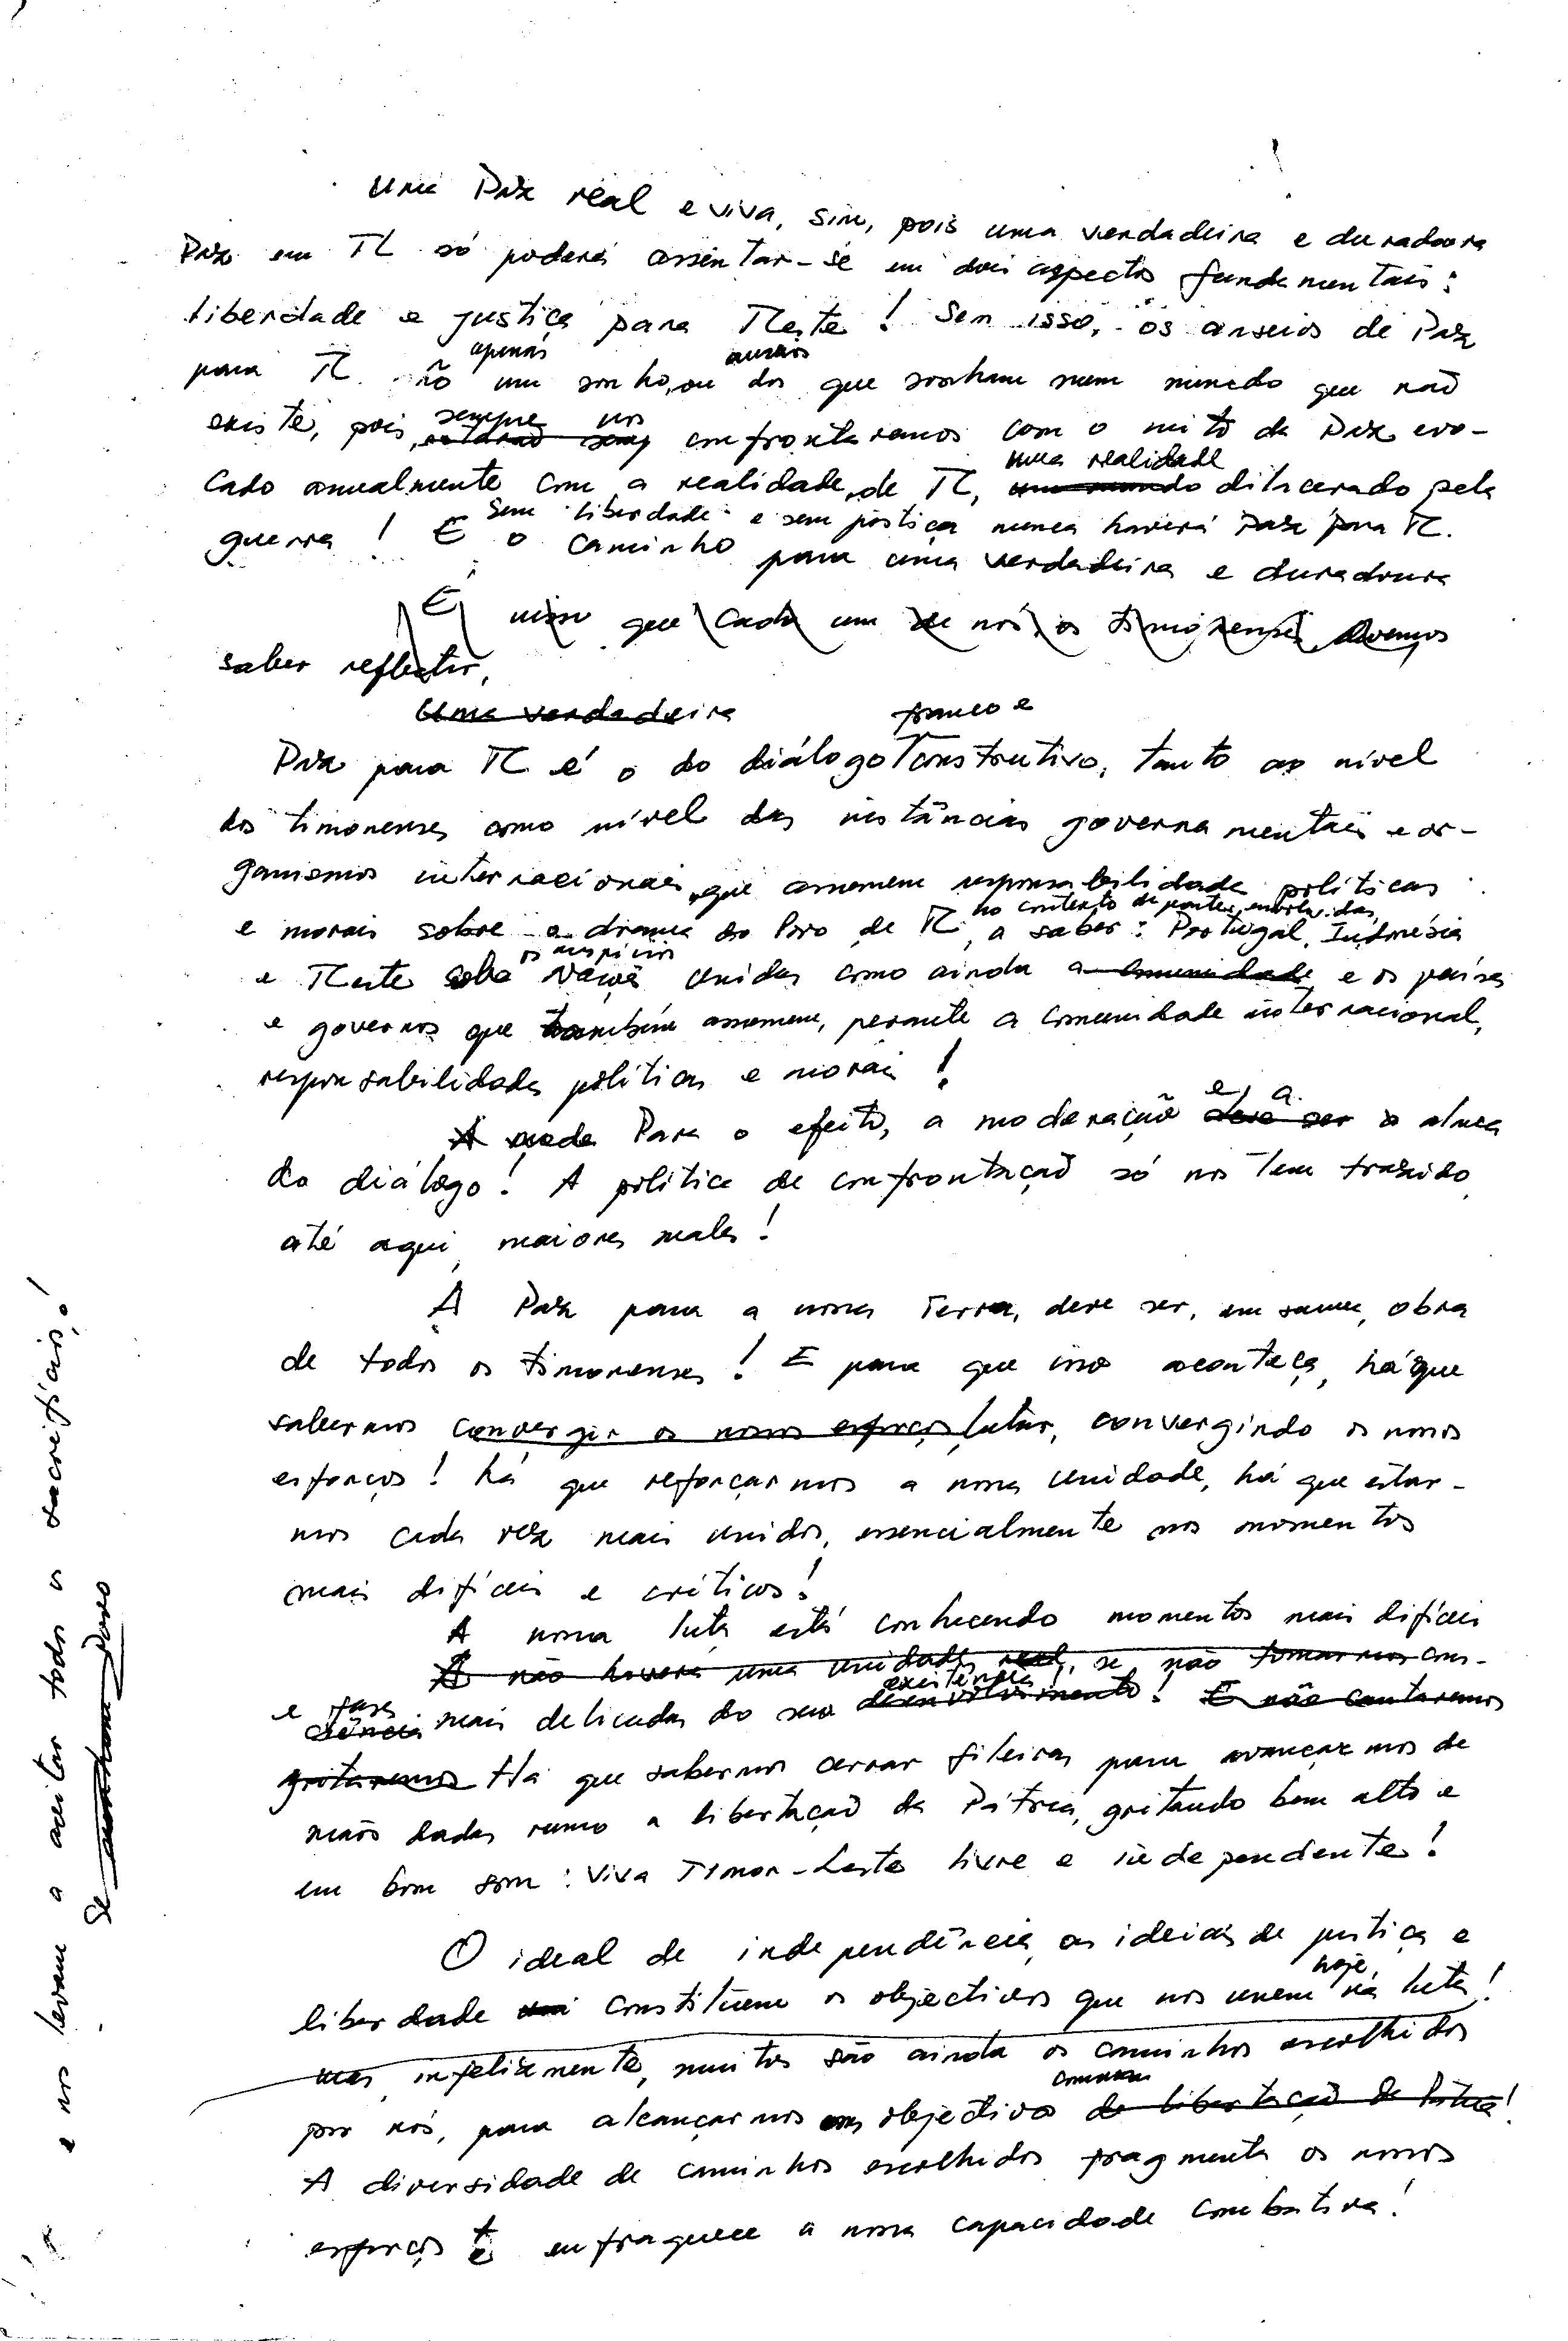 Uma Paz real e viva, sim, pois uma verdadeira e duradoura
Paz em TL só poderá assentar-se em dois aspectos fundamentais:
liberdade e justiça para TLeste! Sem isso, os anseios de Paz
apenas
para TL são um sonho, ou dos que sonham num mundo que não
existe, pois, sempre nos confrontaremos com o mito da Paz evo-
cado anualmente com a realidade de TL, uma realidade dilacerado pela
guerra! Sem liberdade e sem justiça nunca haverá Paz para TL.
E o caminho para uma verdadeira e duradoura
É nisso que cada um de nós, os timorenses, devemos
saber reflectir,
Uma verdadeira
franco e
Paz para TL é o do diálogo construtivo, tanto ao nível
dos timorenses como nível das instâncias governamentais e or-
ganismos internacionais, que assumem responsabilidade políticas
no contexto de partes envolvidas,
e morais sobre o drama do Povo de TL, a saber: Portugal, Indonésia
os auspícios
e TLeste Nações Unidas como ainda a comunidade e os países
e governos que também assumem, perante a comunidade internacional,
responsabilidades políticas e morais!
e, a
A Para o efeito, a moderação deve ser o alma
do diálogo! A política de confrontação só nos tem trazido,
até aqui, maiores males!
A Paz para a nossa Terra, deve ser, em suma, obra
de todos os timorenses! E para que isso aconteça, há que
sabermos convergir os nossos esforços, lutar, convergindo os nossos
esforços! há que reforçarmos a nossa unidade, há que estar-
mos cada vez mais unidos, essencialmente nos momentos
mais difíceis e críticos!
A nossa luta está conhecendo momentos mais difíceis
A não haverá uma unidade real, se não tomarmos cons-
existência!
e fases ciência mais delicadas do seu desenvolvimento! E não cantaremos
gritaremos Há que sabermos cerrar fileiras para avançarmos de
mãos dadas rumo a libertação da Pátria, gritando bem alto e
em bom som: Viva Timor-Leste livre e independente!
O ideal de independência, as ideias de justiça e
hoje,
liberdade constituem os objectivos que nos unem na luta!
mas, infelizmente, muitos são ainda os caminhos escolhidos
comuns
por nós, para alcançarmos objectivos da libertação da Pátria!
A diversidade de caminhos escolhidos fragmenta os nossos
esforços e enfraquece a nossa capacidade combativa!
e nos levam a aceitar todos os sacrifícios!
Se Povo